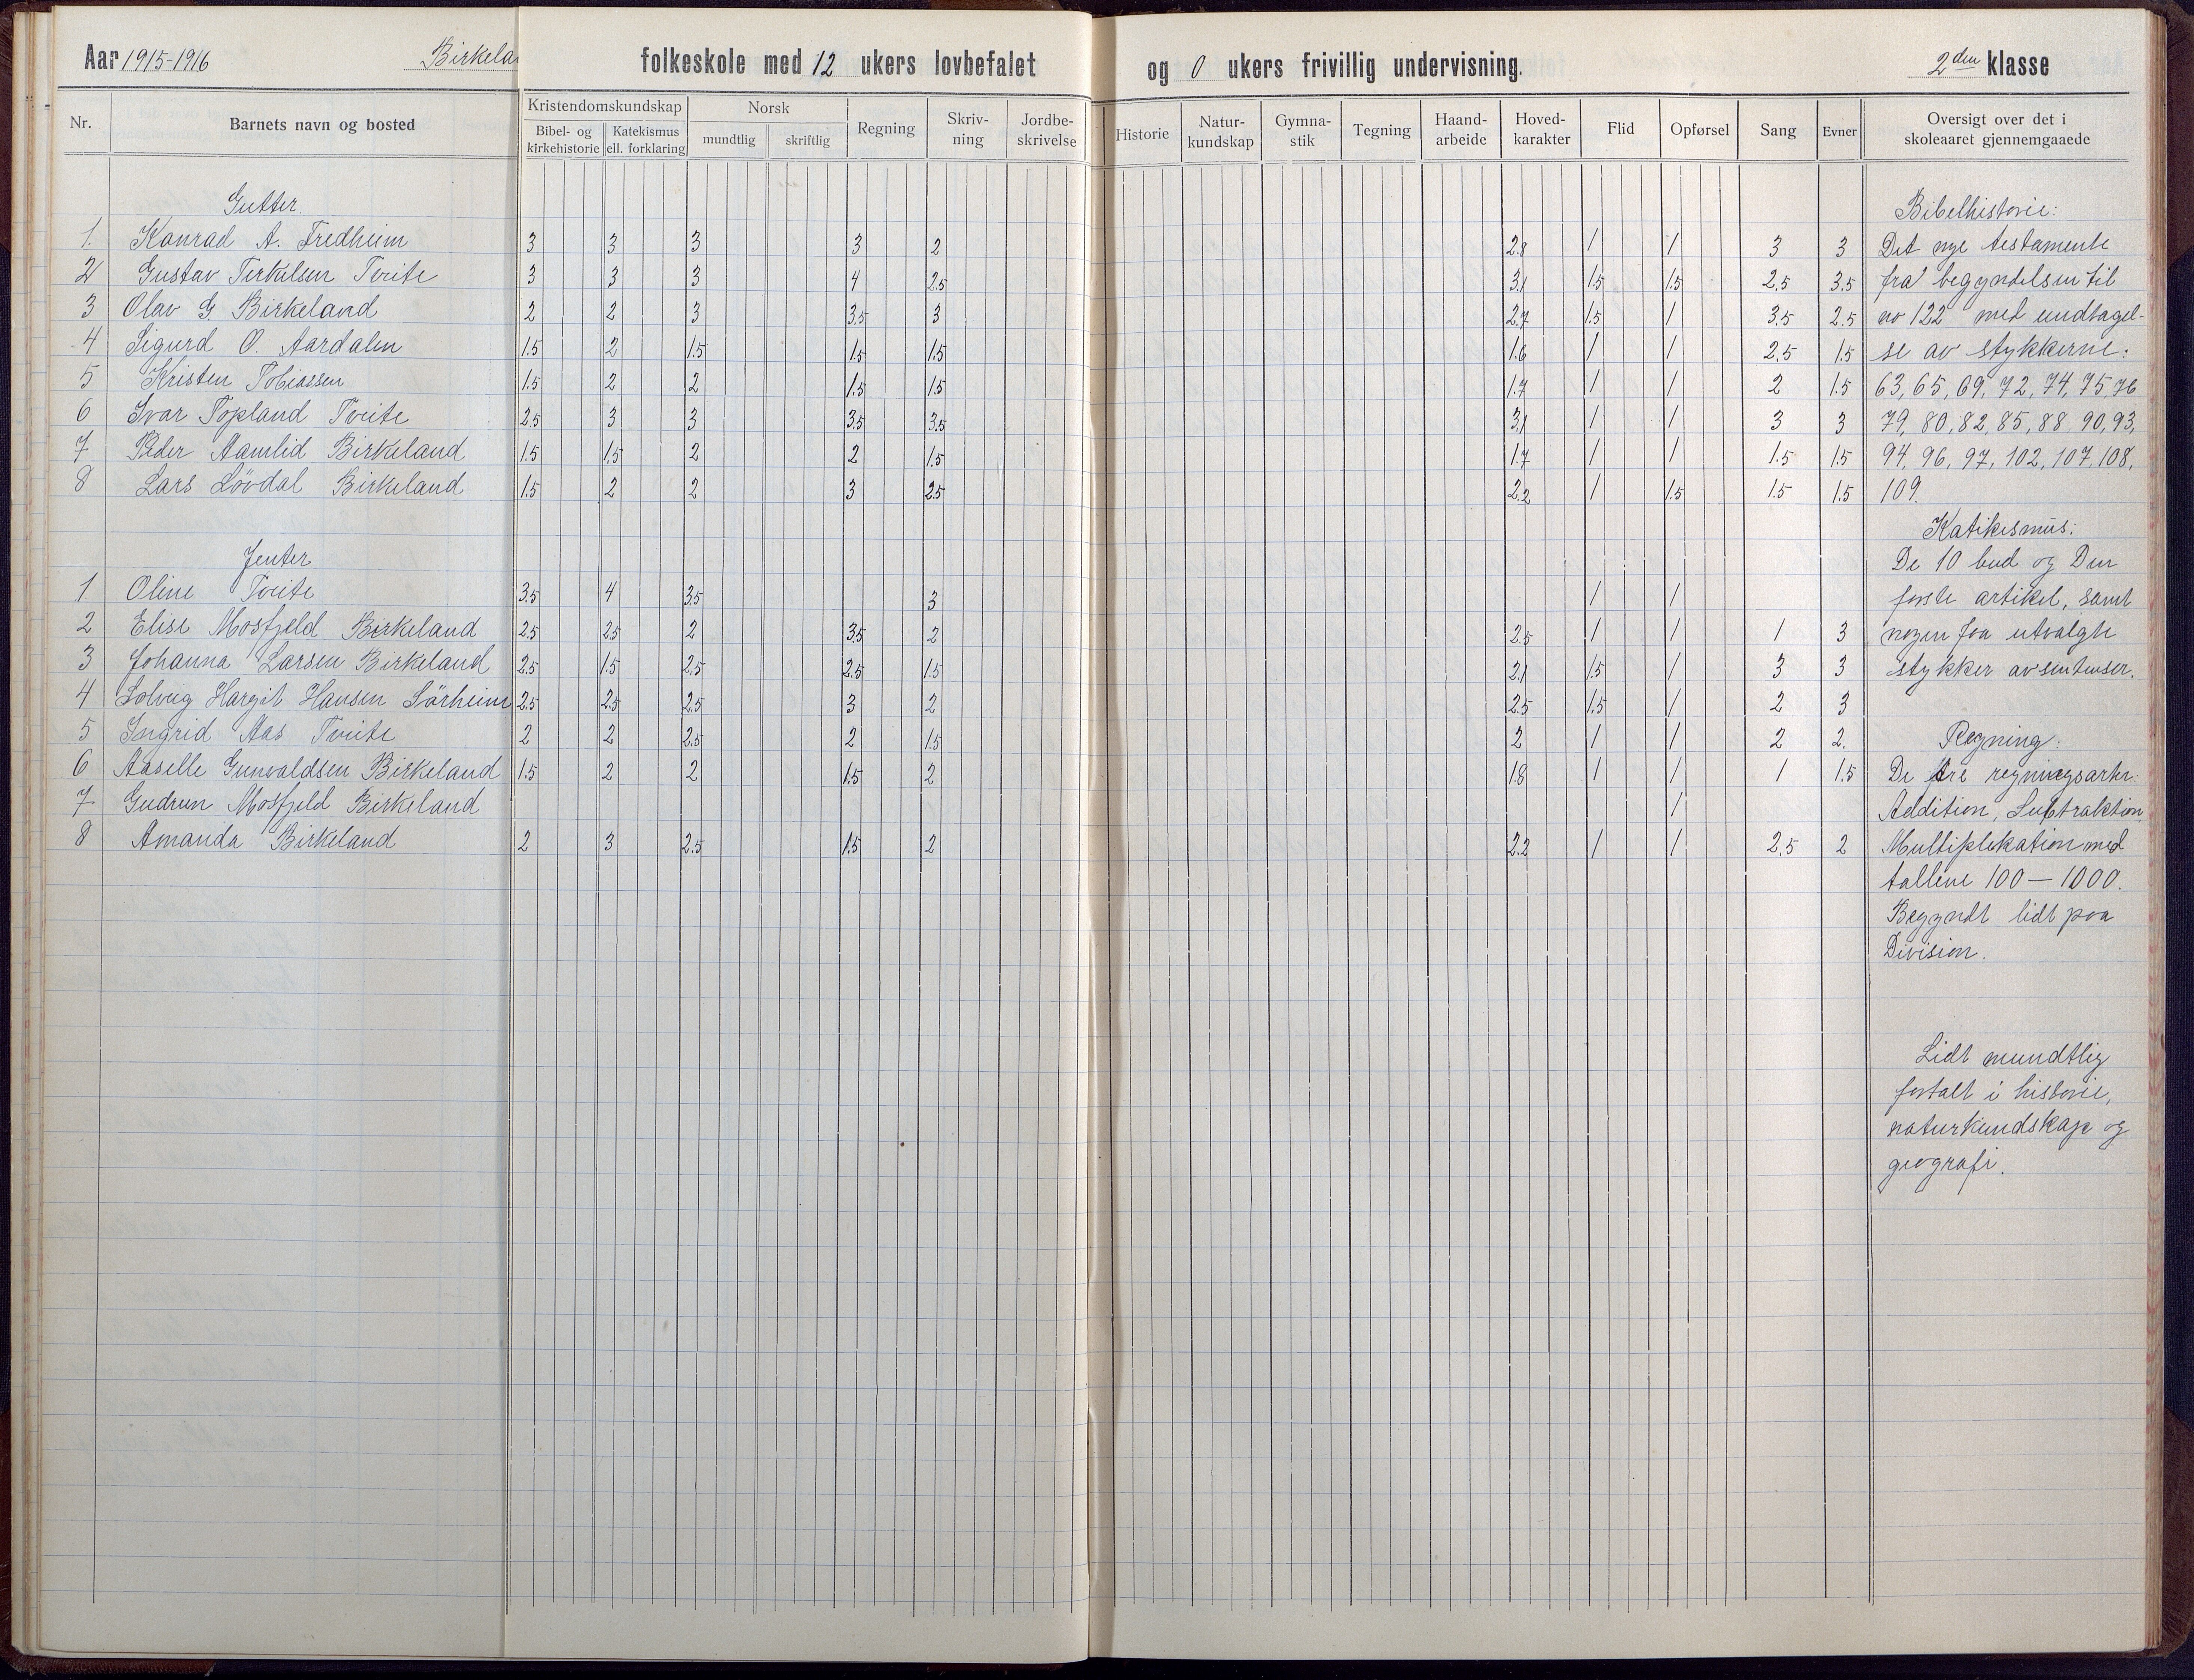 Aar 1915-1916 Birkela folkeskole med 12 ukers lovbefalet og 0 ukers frivillig undervisning. 2den klasse
Nr. Barnets navn og bosted Kristendomskundskap Bibel- og kirkehistorie Katekismus ell. forklaring Norsk mundtlig skriftlig Regning Skriv-ning Jordbe-skrivelse Historie Natur-kundskap Gymna-stik Tegning Haand-arbeide Hoved-karakter Flid Opførsel Sang Evner Oversigt over det i skoleaaret gjennemgaaede
Gutter
1. Konrad A. Fredheim 3 3 3 3 2 2.8 1 1 3 3
2 Gustav Terkelsen Tveite 3 3 3 4 2.5 3.1 1.5 1.5 2.5 3.5
3 Olav G. Birkeland 2 2 3 3.5 3 2.7 1.5 1 3.5 2.5
4 Sigurd O. Aardalen 1.5 2 1.5 1.5 1.5 1.6 1 1 2.5 1.5
5 Kristen Tobiassen 1.5 2 2 1.5 1.5 1.7 1 1 2 1.5
6 Ivar Topland Tveite 2.5 3 3 3.5 3.5 3.1 1 1 3 3
7 Peder Aamlid Birkeland 1.5 1.5 2 2 1.5 1.7 1 1 1.5 1.5
8 Lars Løvdal Birkeland 1.5 2 2 3 2.5 2.2 1 1.5 1.5 1.5
Jenter
1 Oline Tveite 3.5 4 3.5 3 1 1
2 Elise Mosfjeld Birkeland 2.5 2.5 2 3.5 2 2.5 1 1 1 3
3 Johanna Larsen Birkeland 2.5 1.5 2.5 2.5 1.5 2.1 1.5 1 3 3
4 Solveig Margit Hansen Sörheim 2.5 2.5 2.5 3 2 2.5 1.5 1 2 3
5 Ingrid Aas Tveite 2 2 2.5 2 1.5 2 1 1 2 2.
6 Aaselle Gunvaldsen Birkeland 1.5 2 2 1.5 2 1.8 1 1 1 1.5
7 Gudrun Mosfjeld Birkeland 1
8 Amanda Birkeland 2 3 2.5 1.5 2 2.2 1 1 2.5 2
Bibelhistorie:
Det nye testamente
fra begyndelsen til
no 122 med undtagel-
se av stykkerne:
63, 65, 69, 72, 74, 75, 76
79, 80, 82, 85, 88, 90, 93,
94, 96, 97, 102, 107, 108,
109.
Katikesmus:
De 10 bud og Den
første artikel, samt
nogen faa utvalgte
stykker av sentenser.
Regning:
De tre regningsarter:
Addition, Subtraktion
Multiplekation med
tallene 100 — 1000.
Begyndt lidt paa
Division.
Lidt mundtlig
fortalt i historie,
naturkundskap og
geografi.